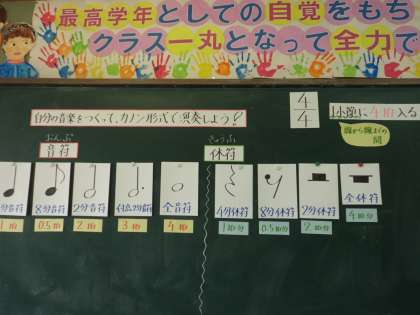 最高学年としての自覚をもち
クラス一丸となって全力で
自分の音楽をつくって、カノン形式で演奏しよう!
4
4
1小節に4拍入る
線から線までの
間
おんぷ
音符
きゅうふ
休符
分音符
8分音符
2分音符
付点2分音符
全音符
4分休符
8分休符
2分休符
全休符
1拍
0.5拍
2拍
3拍
4拍
1拍分
0.5拍分
2拍分
4拍分